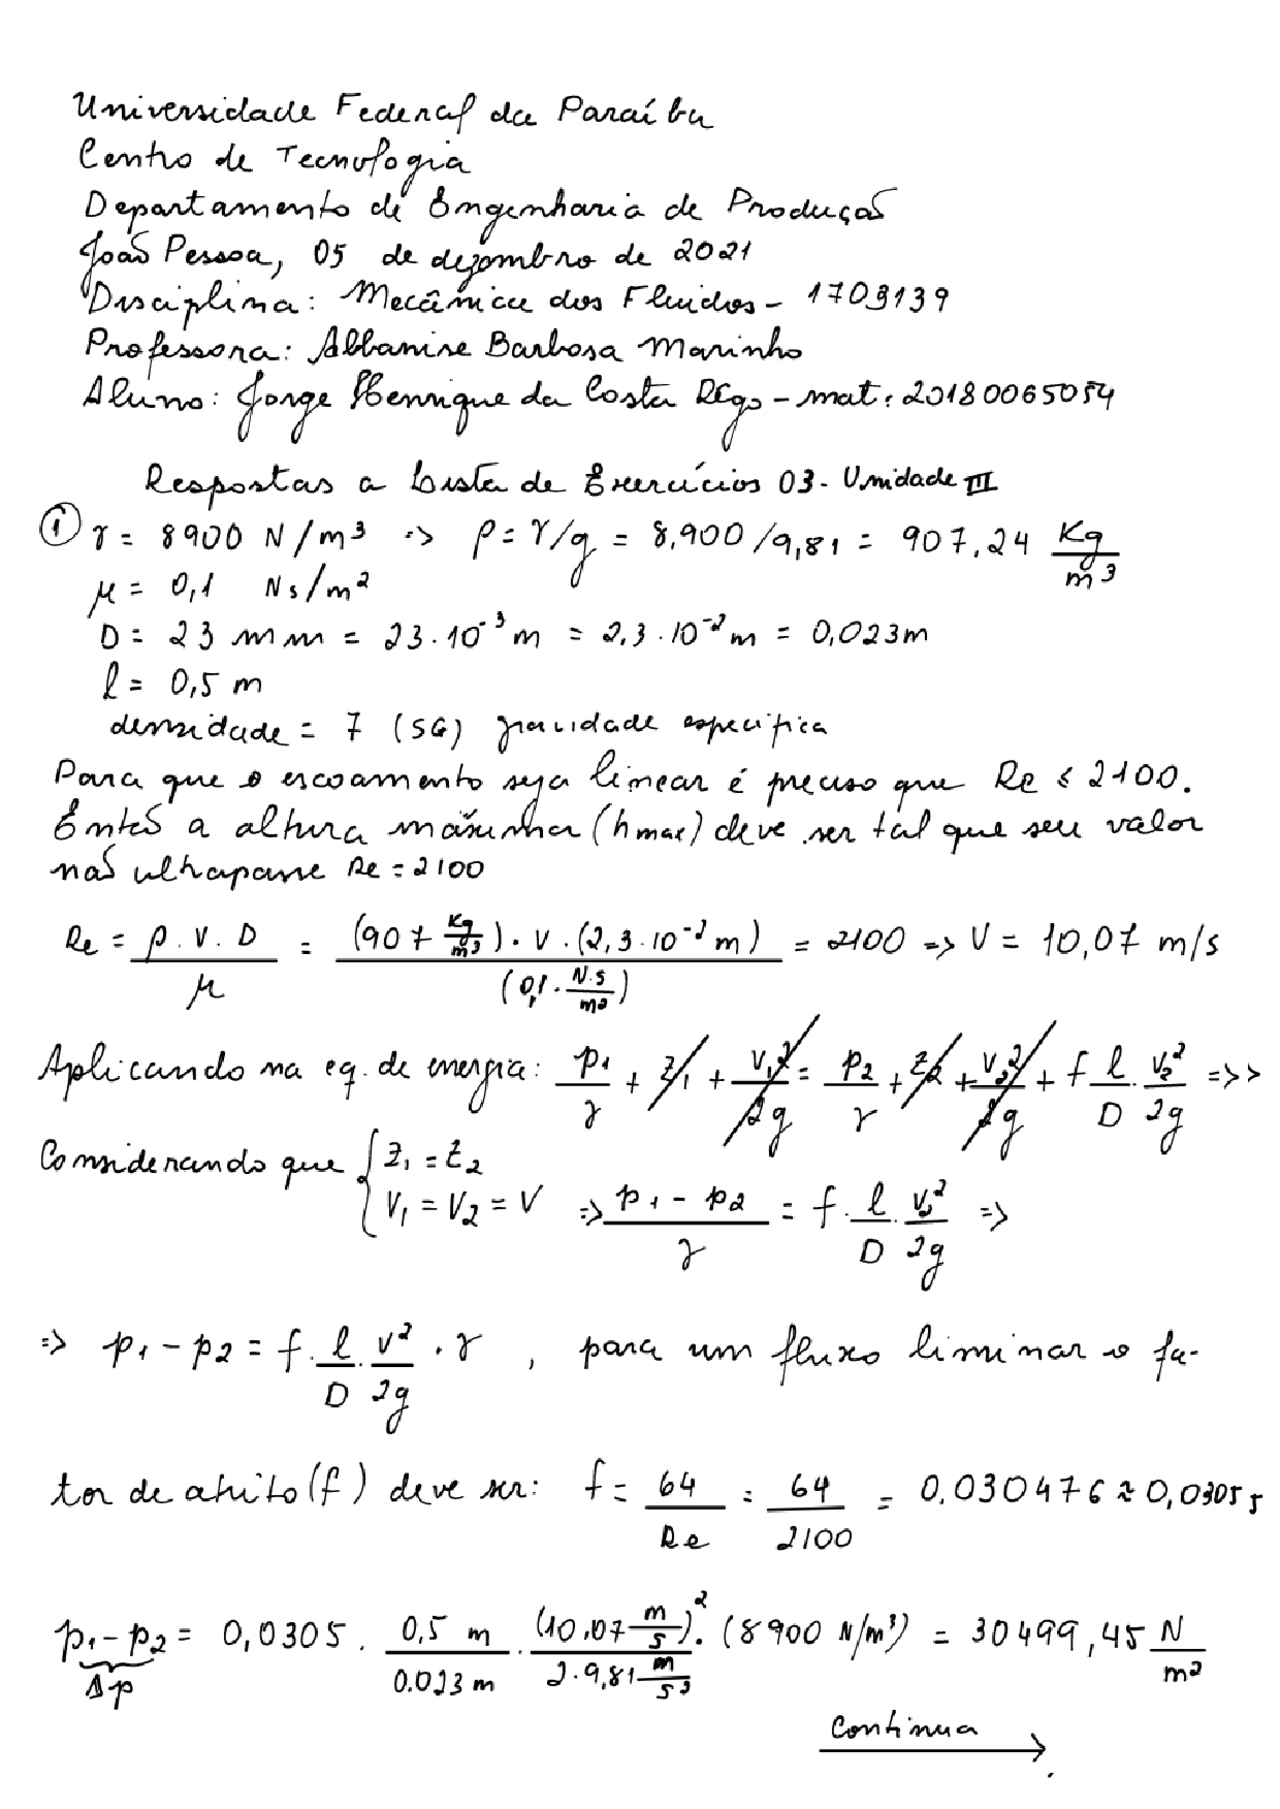 Universidade Federal da Paraíba
Centro de Tecnologia
Departamento de Engenharia de Produção
João Pessoa, 05 de dezembro de 2021
Disciplina: Mecânica dos Fluidos - 1703139
Professora: Albanise Barbosa Marinho
Aluno: Jorge Henrique da Costa Rêgo - mat: 20180065054
Respostas a Lista de Exercícios 03 - Unidade III
① γ = 8900 N/m³ => ρ = γ/g = 8,900/9,81 = 907,24 Kg/m³
μ = 0,1 Ns/m²
D = 23 mm = 23·10⁻³ m = 2,3·10⁻² m = 0,023m
l = 0,5 m
densidade = 7 (SG) gravidade especifica
Para que o escoamento seja linear é preciso que Re ≤ 2100.
Então a altura máxima (hmax) deve ser tal que seu valor
não ultrapasse Re = 2100
Re = ρ.V.D/μ = (907 Kg/m³)·V·(2,3·10⁻² m)/(0,1·N.s/m²) = 2100 => V = 10,07 m/s
Aplicando na eq. de energia: p₁/γ + z₁ + V₁²/2g = p₂/γ + z₂ + V₂²/2g + f l/D · V₂²/2g =>>
Considerando que { z₁ = z₂
V₁ = V₂ = V => p₁ - p₂/γ = f · l/D · V₂²/2g =>
=> p₁ - p₂ = f · l/D · V²/2g · γ , para um fluxo liminar o fa-
tor de atrito (f) deve ser: f = 64/Re = 64/2100 = 0,030476 ≈ 0,0305
p₁ - p₂ = 0,0305 · 0,5 m/0.023 m · (10,07 m/s)²/2·9,81 m/s² · (8900 N/m³) = 30499,45 N/m²
Δp
Continua →